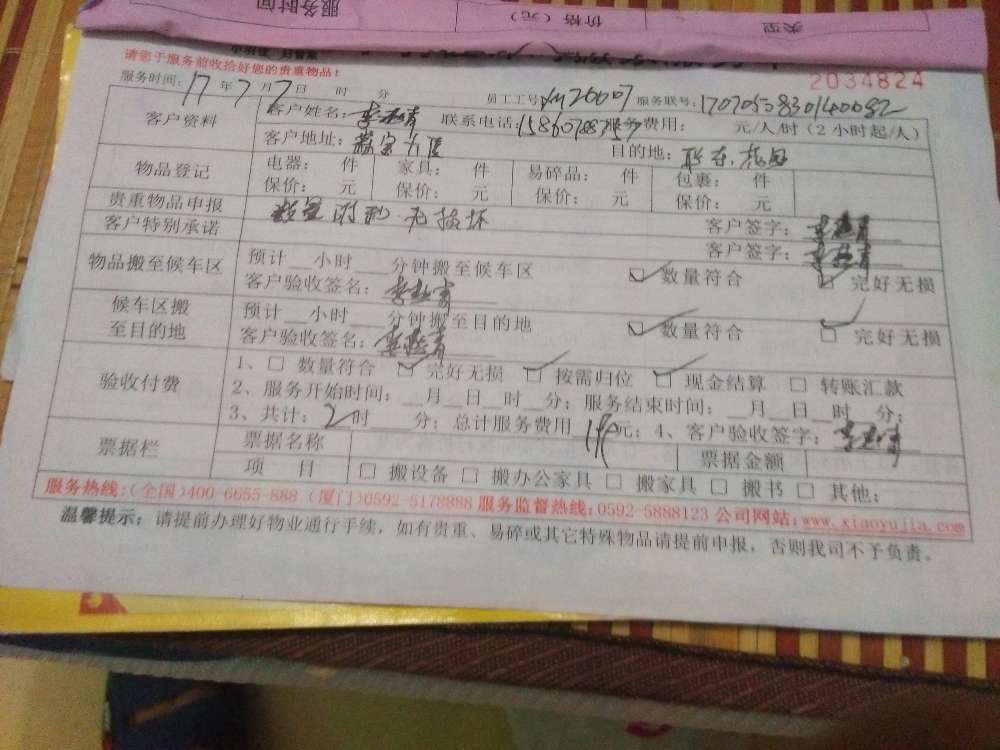 服务时间
价格（元）
类型
请您于服务前收拾好您的贵重物品！
2034824
服务时间：17年7月7日 时 分 员工工号 服务联号：
客户资料
客户姓名： 联系电话： 服务费用： 元/人/时（2小时起/人）
客户地址： 目的地：
物品登记
电器： 件 家具： 件 易碎品： 件 包裹： 件
保价： 元 保价： 元 保价： 元 保价： 元
贵重物品申报 数量 无损坏 客户签字：
客户特别承诺 客户签字：
物品搬至候车区
预计__小时__分钟搬至候车区 □数量符合 □完好无损
客户验收签名：
候车区搬
至目的地
预计__小时__分钟搬至目的地 □数量符合 □完好无损
客户验收签名：
验收付费
1、□数量符合 □完好无损 □按需归位 □现金结算 □转账汇款
2、服务开始时间：__月__日__时__分；服务结束时间：__月__日__时__分；
3、共计：2时__分；总计服务费用 元；4、客户验收签字：
票据栏
票据名称 票据金额
项 目 □搬设备 □搬办公家具 □搬家具 □搬书 □其他：
服务热线：（全国）400-6655-888（厦门）0592-5178888 服务监督热线：0592-5888123 公司网站：www.xiaoyujia.com
温馨提示：请提前办理好物业通行手续，如有贵重、易碎或其它特殊物品请提前申报，否则我司不予负责。